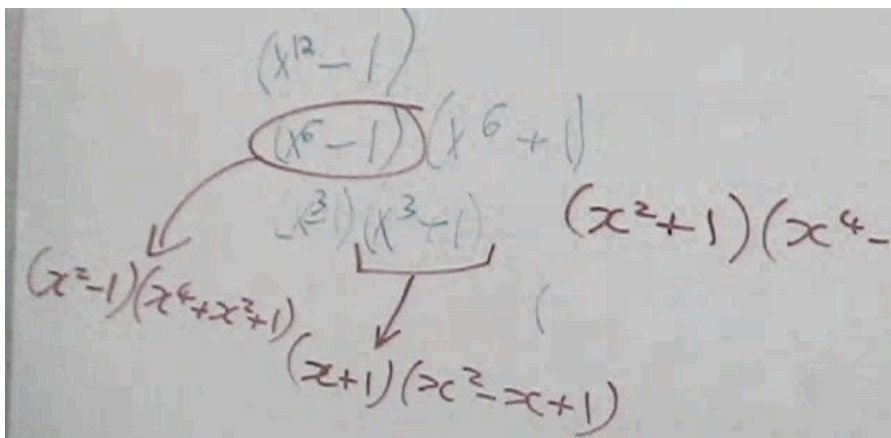 (x¹² - 1)
(x⁶ - 1) (x⁶ + 1)
x³ 1) (x³ + 1)
(x² + 1) (x⁴ -
(x² - 1) (x⁴ + x² + 1)
(
(x + 1) (x² - x + 1)